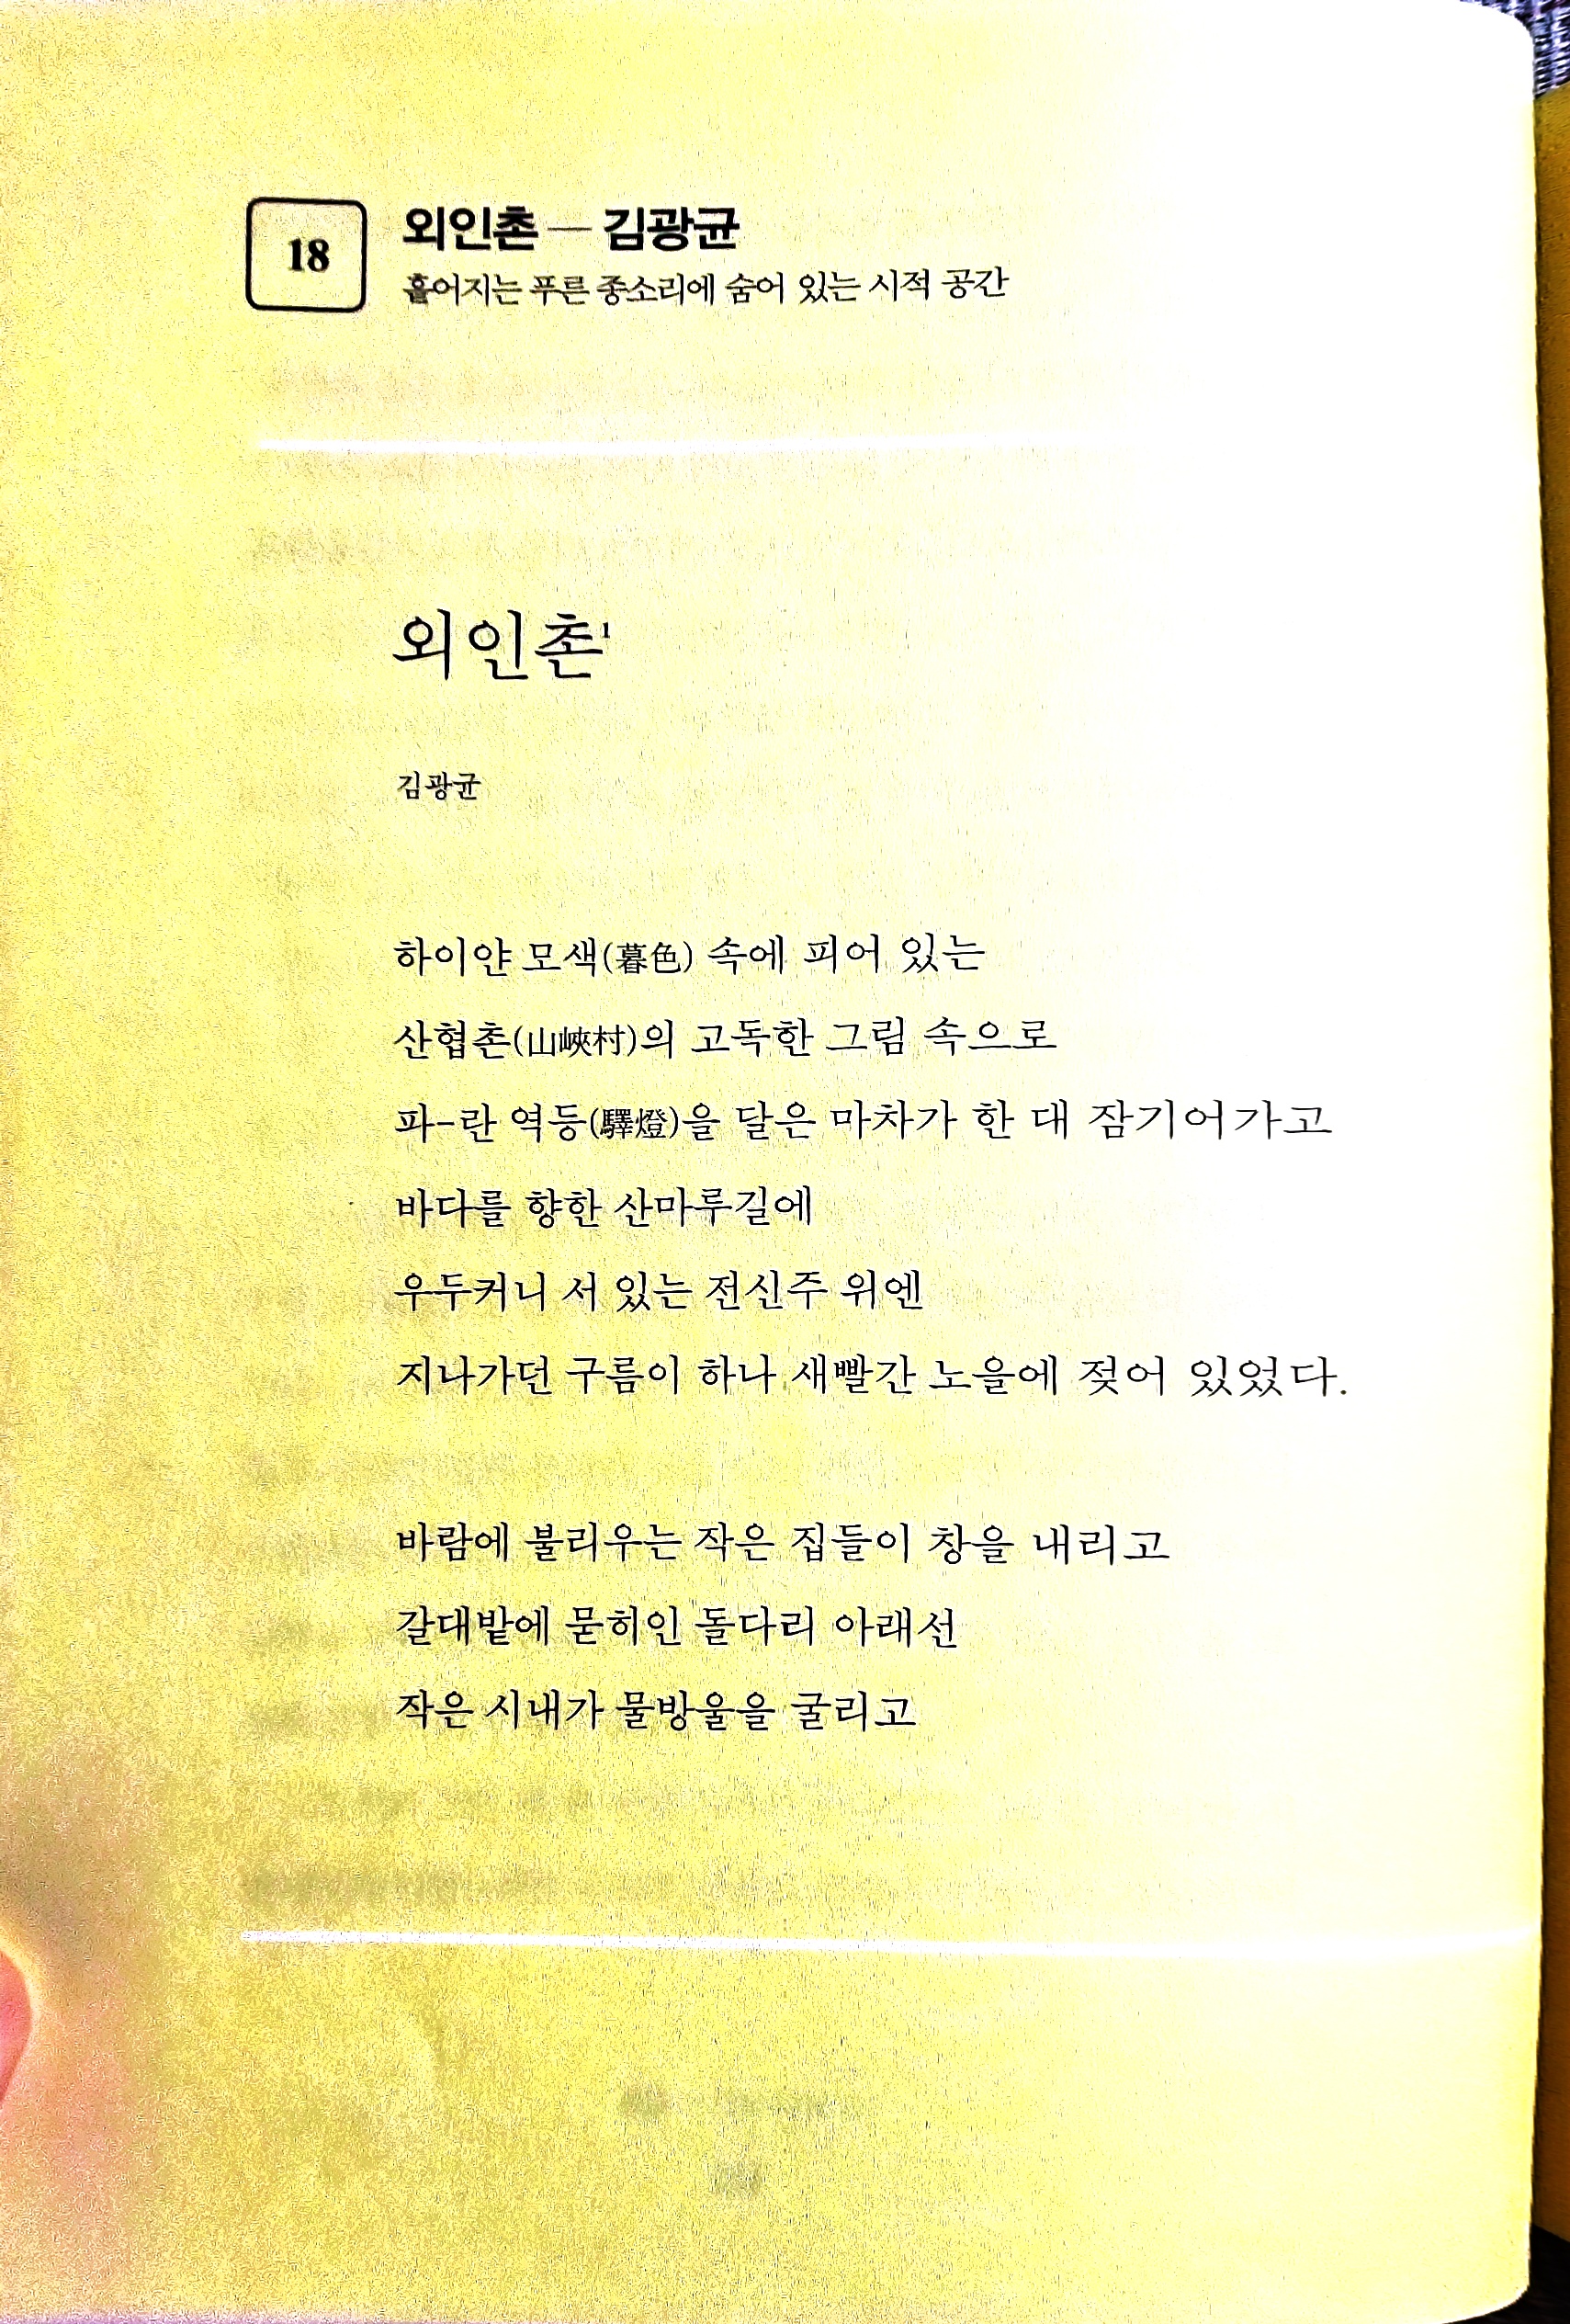 18
외인촌 — 김광균
흩어지는 푸른 종소리에 숨어 있는 시적 공간
외인촌¹
김광균
하이얀 모색(暮色) 속에 피어 있는
산협촌(山峽村)의 고독한 그림 속으로
파-란 역등(驛燈)을 달은 마차가 한 대 잠기어가고
바다를 향한 산마루길에
우두커니 서 있는 전신주 위엔
지나가던 구름이 하나 새빨간 노을에 젖어 있었다.
바람에 불리우는 작은 집들이 창을 내리고
갈대밭에 묻히인 돌다리 아래선
작은 시내가 물방울을 굴리고